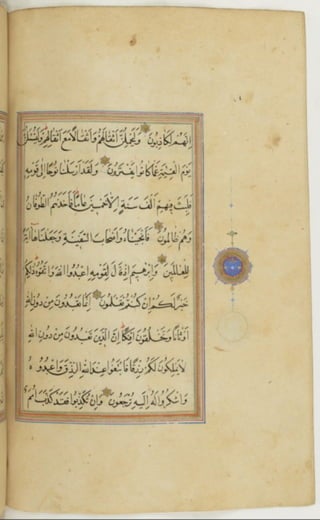 اِنَّهُمْ لَكَاذِبُونَ وَلَيَحْمِلُنَّ اَثْقَالَهُمْ وَاَثْقَالًا مَعَ اَثْقَالِهِمْ وَلَيُسْئَلُنَّ
يَوْمَ الْقِيٰمَةِ عَمَّا كَانُوا يَفْتَرُونَ وَلَقَدْ اَرْسَلْنَا نُوحًا اِلٰى قَوْمِهِ
فَلَبِثَ فِيهِمْ اَلْفَ سَنَةٍ اِلَّا خَمْسِينَ عَامًا فَاَخَذَهُمُ الطُّوفَانُ
وَهُمْ ظَالِمُونَ فَاَنْجَيْنَاهُ وَاَصْحَابَ السَّفِينَةِ وَجَعَلْنَاهَا اٰيَةً
لِلْعَالَمِينَ وَاِبْرٰهِيمَ اِذْ قَالَ لِقَوْمِهِ اعْبُدُوا اللهَ وَاتَّقُوهُ ذٰلِكُمْ
خَيْرٌ لَكُمْ اِنْ كُنْتُمْ تَعْلَمُونَ اِنَّمَا تَعْبُدُونَ مِنْ دُونِ اللهِ
اَوْثَانًا وَتَخْلُقُونَ اِفْكًا اِنَّ الَّذِينَ تَعْبُدُونَ مِنْ دُونِ اللهِ
لَا يَمْلِكُونَ لَكُمْ رِزْقًا فَابْتَغُوا عِنْدَ اللهِ الرِّزْقَ وَاعْبُدُوهُ
وَاشْكُرُوا لَهُ اِلَيْهِ تُرْجَعُونَ وَاِنْ تُكَذِّبُوا فَقَدْ كَذَّبَ اُمَمٌ